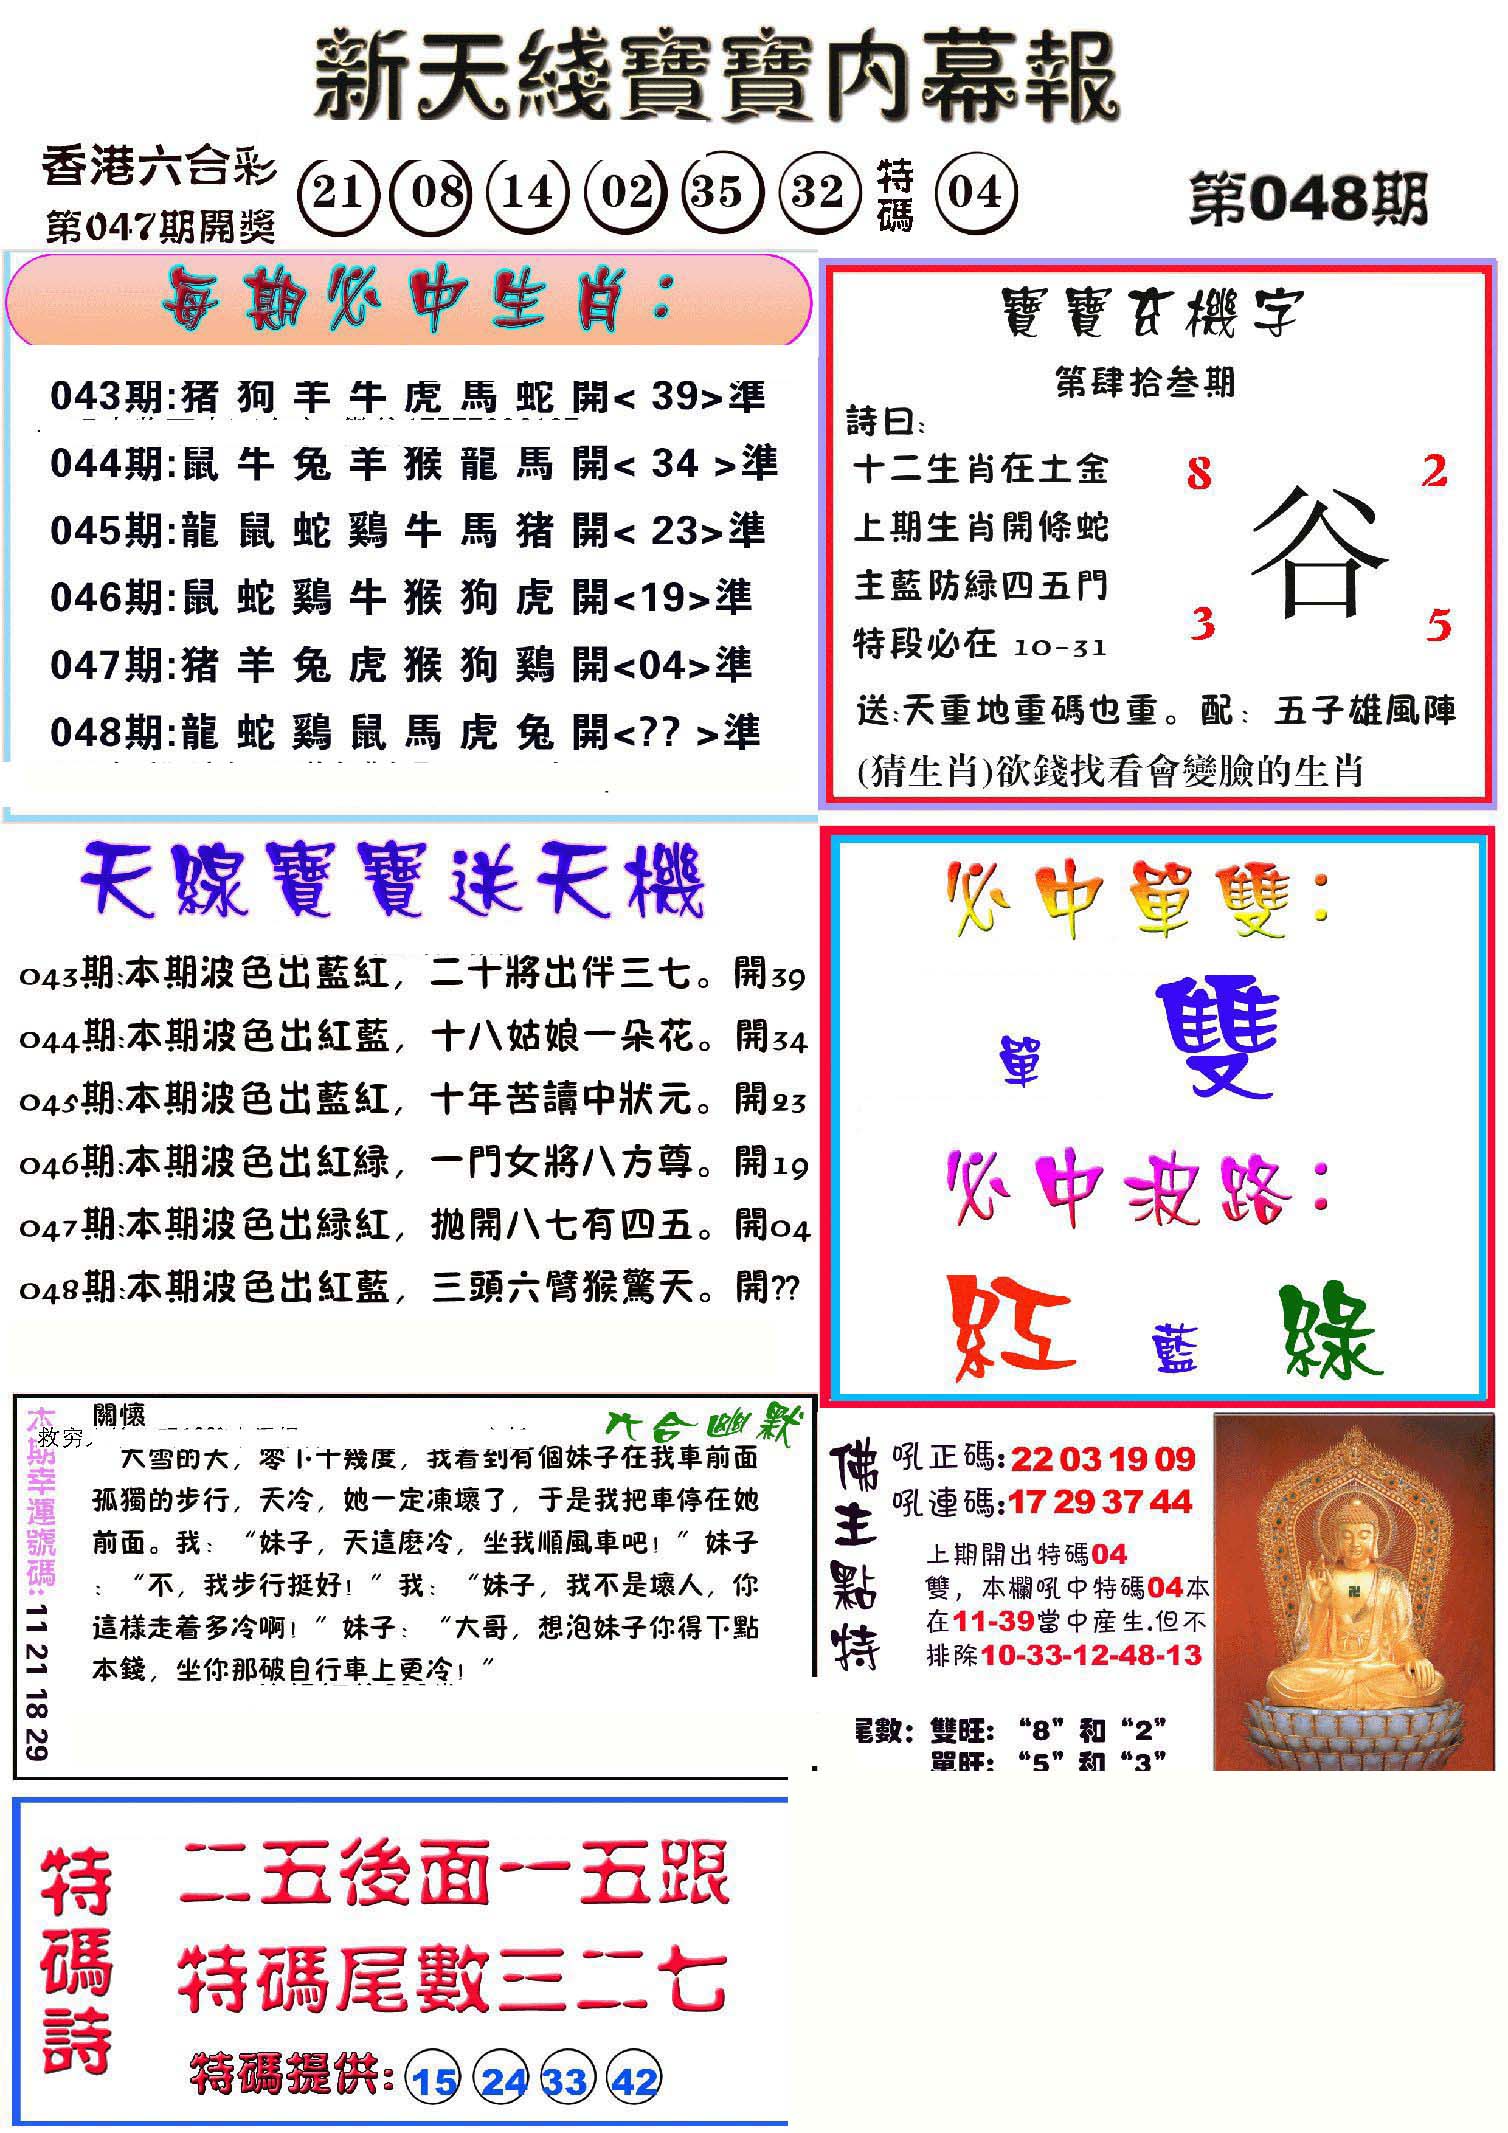 新天綫寶寶内幕報
香港六合彩
第047期開獎
21 08 14 02 35 32 特碼 04
第048期
每期必中生肖：
043期:猪 狗 羊 牛 虎 馬 蛇 開< 39>準
044期:鼠 牛 兔 羊 猴 龍 馬 開< 34 >準
045期:龍 鼠 蛇 鷄 牛 馬 猪 開< 23>準
046期:鼠 蛇 鷄 牛 猴 狗 虎 開<19>準
047期:猪 羊 兔 虎 猴 狗 鷄 開<04>準
048期:龍 蛇 鷄 鼠 馬 虎 兔 開<?? >準
寶寶玄機字
第肆拾叁期
詩曰:
十二生肖在土金
上期生肖開條蛇
主藍防緑四五門
特段必在 10-31
8 2
谷
3 5
送:天重地重碼也重。配: 五子雄風陣
(猜生肖)欲錢找看會變臉的生肖
天線寶寶送天機
043期:本期波色出藍紅, 二十將出伴三七。開39
044期:本期波色出紅藍, 十八姑娘一朵花。開34
045期:本期波色出藍紅, 十年苦讀中狀元。開23
046期:本期波色出紅緑, 一門女將八方尊。開19
047期:本期波色出緑紅, 拋開八七有四五。開04
048期:本期波色出紅藍, 三頭六臂猴驚天。開??
必中單雙：
單 雙
必中波路：
紅 藍 綠
本期幸運號碼: 11 21 18 29
關懷
六合幽默
救穷
大雪的天, 零下十幾度, 我看到有個妹子在我車前面
孤獨的步行, 天冷, 她一定凍壞了, 于是我把車停在她
前面。我: “妹子, 天這麼冷, 坐我順風車吧! ”妹子
: “不, 我步行挺好! ”我: “妹子, 我不是壞人, 你
這樣走着多冷啊! ” 妹子: “大哥, 想泡妹子你得下點
本錢, 坐你那破自行車上更冷! ”
佛主點特
吼正碼:22 03 19 09
吼連碼:17 29 37 44
上期開出特碼04
雙, 本欄吼中特碼04本
在11-39當中産生.但不
排除10-33-12-48-13
尾數: 雙旺: “8”和“2”
單旺: “5”和“3”
特碼詩
二五後面一五跟
特碼尾數三二七
特碼提供: 15 24 33 42